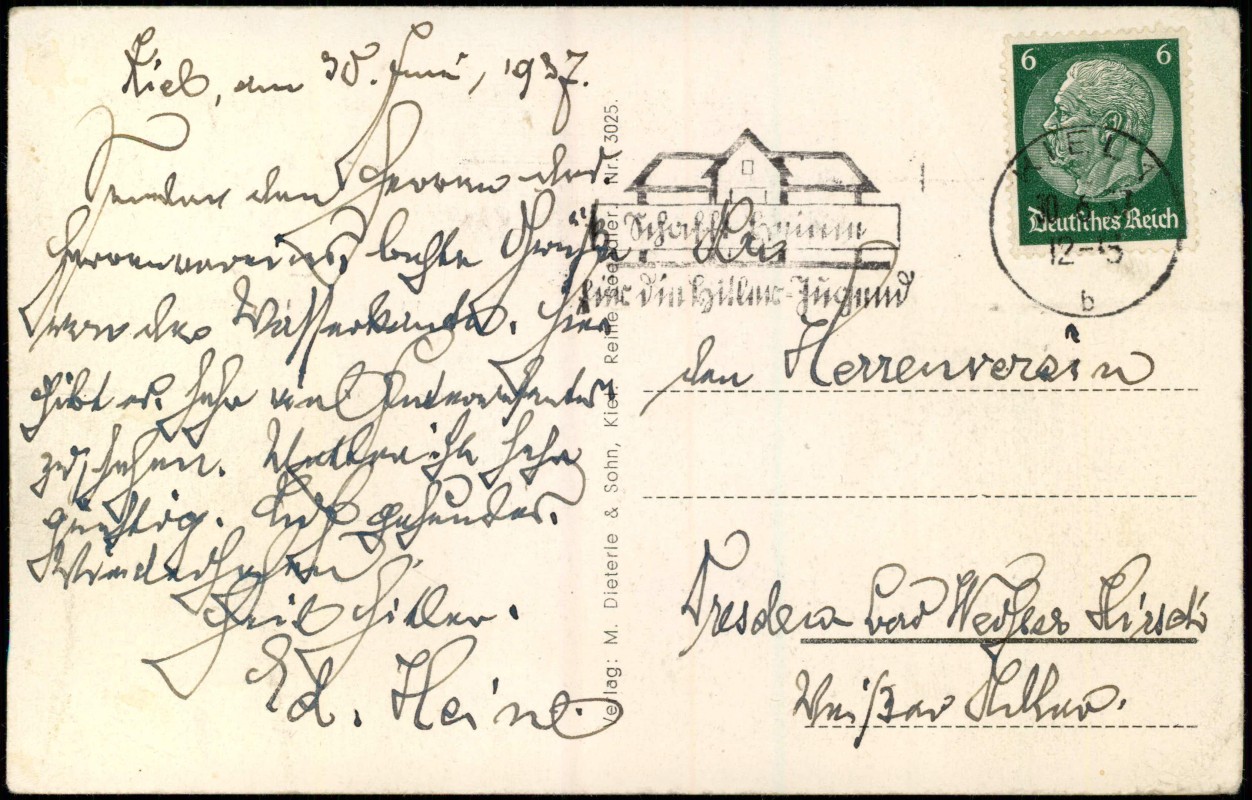 Kiel, am 30. Juni, 1937.
Sendet den Herren des
Herrenvereins beste Grüße
von der Wasserkante. Hier
gibt es sehr viel Interessantes
zu sehen. Wetter ist sehr
günstig. Auf
Wiedersehen
Heil Hitler.
Ed. Heine
Verlag: M. Dieterle & Sohn, Kiel. Reihe Seeadler. Nr. 3025.
Schafft Heime
für die Hitler-Jugend
6 6
Deutsches Reich
KIEL
30.6.
12-13
b
An
den Herrenverein
Dresden Bad Weißer Hirsch
Weißer Adler.